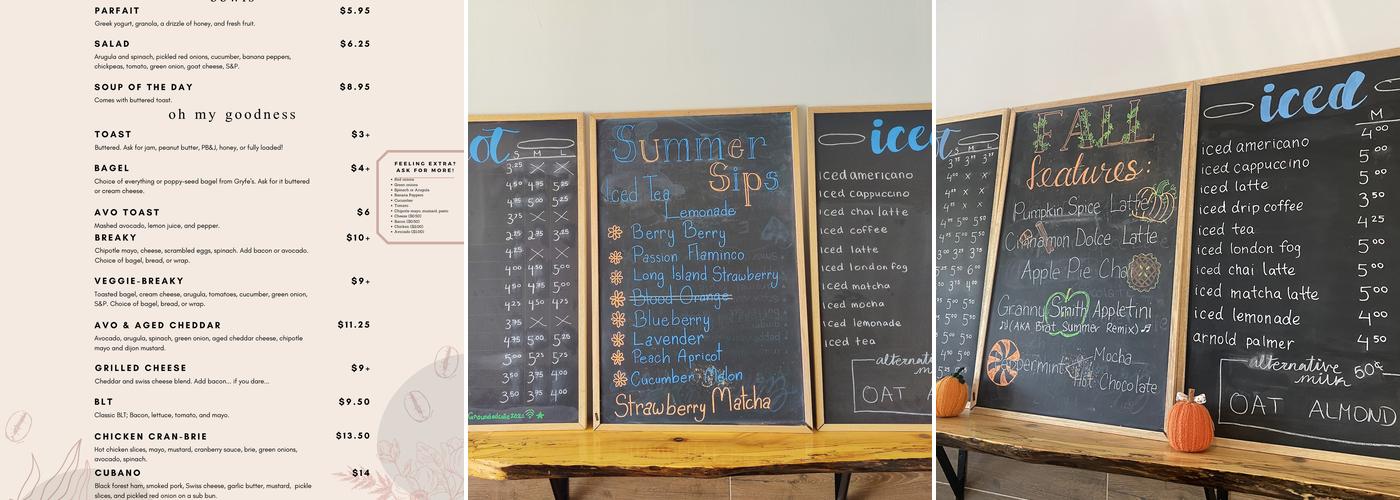 PARFAIT $5.95
Greek yogurt, granola, a drizzle of honey, and fresh fruit.
SALAD $6.25
Arugula and spinach, pickled red onions, cucumber, banana peppers,
chickpeas, tomato, green onion, goat cheese, S&P.
SOUP OF THE DAY $8.95
Comes with buttered toast.
oh my goodness
TOAST $3+
Buttered. Ask for jam, peanut butter, PB&J, honey, or fully loaded!
BAGEL $4+
Choice of everything or poppy-seed bagel from Gryfe's. Ask for it buttered
or cream cheese.
AVO TOAST $6
Mashed avocado, lemon juice, and pepper.
BREAKY $10+
Chipotle mayo, cheese, scrambled eggs, spinach. Add bacon or avocado.
Choice of bagel, bread, or wrap.
VEGGIE-BREAKY $9+
Toasted bagel, cream cheese, arugula, tomatoes, cucumber, green onion,
S&P. Choice of bagel, bread, or wrap.
AVO & AGED CHEDDAR $11.25
Avocado, arugula, spinach, green onion, aged cheddar cheese, chipotle
mayo and dijon mustard.
GRILLED CHEESE $9+
Cheddar and swiss cheese blend. Add bacon... if you dare...
BLT $9.50
Classic BLT; Bacon, lettuce, tomato, and mayo.
CHICKEN CRAN-BRIE $13.50
Hot chicken slices, mayo, mustard, cranberry sauce, brie, green onions,
avocado, spinach.
CUBANO $14
Black forest ham, smoked pork, Swiss cheese, garlic butter, mustard, pickle
slices, and pickled red onion on a sub bun.
FEELING EXTRA?
ASK FOR MORE!
Red onions
Green onions
Spinach or Arugula
Banana Peppers
Cucumber
Tomato
Chipotle mayo, mustard, pesto
Cheese ($0.50)
Bacon ($2.00)
Chicken ($3.00)
Avocado ($1.00)
ot
S M L
3.25 X X
4.50 4.75 5.25
Summer
Sips
Iced Tea
Lemonade
Berry Berry
Passion Flamingo
Long Island Strawberry
Blood Orange
Blueberry
Lavender
Peach Apricot
Cucumber Melon
Strawberry Matcha
iced
iced americano
iced cappuccino
iced chai latte
iced coffee
iced latte
iced london fog
iced matcha
iced mocha
iced lemonade
iced tea
alternative
OAT
FALL
features:
Pumpkin Spice Latte
Cinnamon Dolce Latte
Apple Pie Chai
Granny Smith Appletini
(AKA Brat Summer Remix)
Peppermint Mocha
Hot Chocolate
iced
M
iced americano 4.00
iced cappuccino 5.00
iced latte 5.00
iced drip coffee 3.50
iced tea 4.25
iced london fog 5.00
iced chai latte 5.00
iced matcha latte 5.00
iced lemonade 4.00
arnold palmer 4.50
alternative milk 50¢
OAT ALMOND